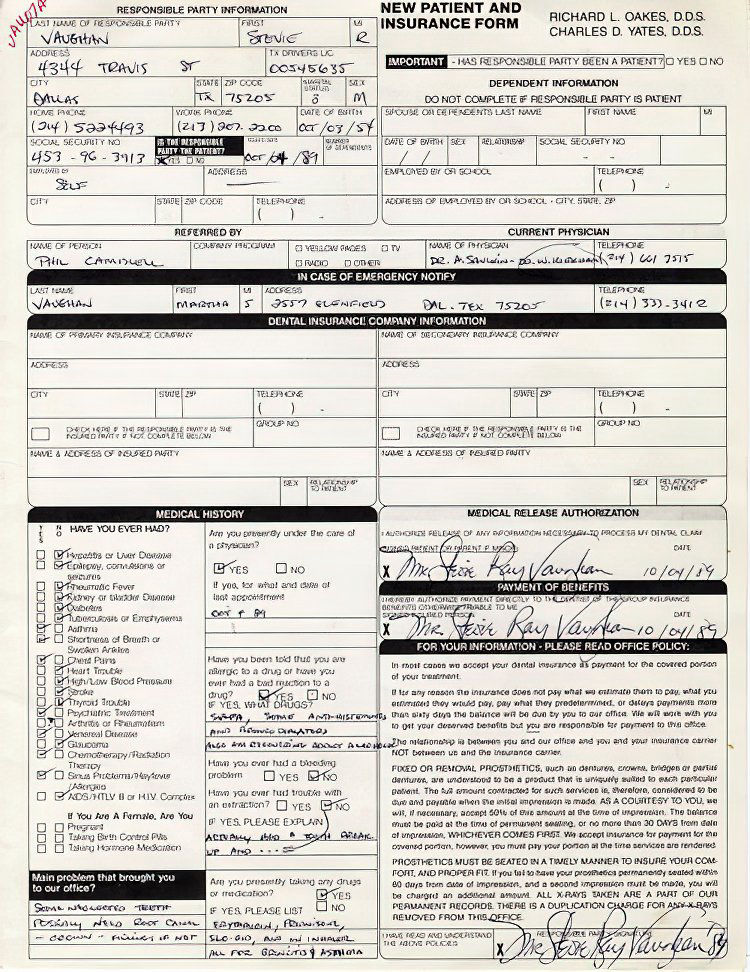 RESPONSIBLE PARTY INFORMATION
LAST NAME OF RESPONSIBLE PARTY FIRST MI
VAUGHAN STEVIE R
ADDRESS TX DRIVERS LIC
4344 TRAVIS ST 00545635
CITY STATE ZIP CODE SEX
DALLAS TX 75205 M
HOME PHONE WORK PHONE DATE OF BIRTH
(214) 5224493 (213) 207.2200 OCT/03/54
SOCIAL SECURITY NO IS THE RESPONSIBLE PARTY THE PATIENT?
453-96-3913 YES NO OCT/04/89
ADDRESS
SELF
CITY STATE ZIP CODE TELEPHONE
( ) -
NEW PATIENT AND
INSURANCE FORM
RICHARD L. OAKES, D.D.S.
CHARLES D. YATES, D.D.S.
IMPORTANT - HAS RESPONSIBLE PARTY BEEN A PATIENT? YES NO
DEPENDENT INFORMATION
DO NOT COMPLETE IF RESPONSIBLE PARTY IS PATIENT
SPOUSE OR DEPENDENTS LAST NAME FIRST NAME MI
DATE OF BIRTH SEX RELATIONSHIP SOCIAL SECURITY NO
/ / - -
EMPLOYED BY OR SCHOOL TELEPHONE
( ) -
ADDRESS OF EMPLOYED BY OR SCHOOL - CITY, STATE, ZIP
REFERRED BY
NAME OF PERSON COMPANY PROGRAM YELLOW PAGES TV
PHIL RADIO OTHER
CURRENT PHYSICIAN
NAME OF PHYSICIAN TELEPHONE
DR. A. (214) 661 7515
IN CASE OF EMERGENCY NOTIFY
LAST NAME FIRST MI ADDRESS TELEPHONE
VAUGHAN MARTHA S 2557 GLENFIELD DAL. TEX 75205 (214) 333-3412
DENTAL INSURANCE COMPANY INFORMATION
NAME OF PRIMARY INSURANCE COMPANY NAME OF SECONDARY INSURANCE COMPANY
ADDRESS ADDRESS
CITY STATE ZIP TELEPHONE CITY STATE ZIP TELEPHONE
( ) - ( ) -
CHECK HERE IF THE RESPONSIBLE PARTY IS THE GROUP NO CHECK HERE IF THE RESPONSIBLE PARTY IS THE GROUP NO
INSURED PARTY IF NOT COMPLETE BELOW INSURED PARTY IF NOT COMPLETE BELOW
NAME & ADDRESS OF INSURED PARTY NAME & ADDRESS OF INSURED PARTY
SEX RELATIONSHIP TO PATIENT SEX RELATIONSHIP TO PATIENT
MEDICAL HISTORY
YES NO HAVE YOU EVER HAD?
Hepatitis or Liver Disease
Epilepsy, convulsions or
seizures
Rheumatic Fever
Kidney or Bladder Disease
Diabetes
Tuberculosis or Emphysema
Asthma
Shortness of Breath or
Swollen Ankles
Chest Pains
Heart Trouble
High/Low Blood Pressure
Stroke
Thyroid Trouble
Psychiatric Treatment
Arthritis or Rheumatism
Venereal Disease
Glaucoma
Chemotherapy/Radiation
Therapy
Sinus Problems/Hayfever
/Allergies
AIDS/HTLV III or H.I.V. Complex
If You Are A Female, Are You
Pregnant
Taking Birth Control Pills
Taking Hormone Medication
Main problem that brought you
to our office?
SOME NEGLECTED TEETH
POSSIBLY NEED ROOT CANAL
- CROWN - IF NOT
Are you presently under the care of
a physician?
YES NO
If yes, for what and date of
last appointment
OCT 89
Have you been told that you are
allergic to a drug or have you
ever had a bad reaction to a
drug? YES NO
IF YES, WHAT DRUGS?
SULFA, SOME ANTI-HISTAMINES
AND
ALSO AM RECOVERING ADDICT ALCOHOLIC
Have you ever had a bleeding
problem YES NO
Have you ever had trouble with
an extraction? YES NO
IF YES, PLEASE EXPLAIN
ACTUALLY HAD A TOOTH BREAK
UP AND ...
Are you presently taking any drugs
or medication? YES
IF YES, PLEASE LIST NO
SLO-BID, AND AN INHALER
ALL FOR BRONCITIS & ASTHMA
MEDICAL RELEASE AUTHORIZATION
I AUTHORIZE RELEASE OF ANY INFORMATION NECESSARY TO PROCESS MY DENTAL CLAIM
SIGNED PATIENT OR PARENT IF MINOR DATE
X Mr. Stevie Ray Vaughan 10/04/89
PAYMENT OF BENEFITS
I HEREBY AUTHORIZE PAYMENT DIRECTLY TO THE DENTIST OF THE GROUP INSURANCE
BENEFITS OTHERWISE PAYABLE TO ME
SIGNED INSURED PERSON DATE
X Mr. Stevie Ray Vaughan 10/04/89
FOR YOUR INFORMATION - PLEASE READ OFFICE POLICY:
In most cases we accept your dental insurance as payment for the covered portion
of your treatment.
If for any reason the insurance does not pay what we estimate them to pay, what you
estimated they would pay, pay what they predetermined, or delays payments more
than sixty days the balance will be due by you to our office. We will work with you
to get your deserved benefits but you are responsible for payment to this office.
The relationship is between you and our office and you and your insurance carrier
NOT between us and the insurance carrier.
FIXED OR REMOVAL PROSTHETICS, such as dentures, crowns, bridges or partial
dentures, are understood to be a product that is uniquely suited to each particular
patient. The full amount contracted for such services is, therefore, considered to be
due and payable when the initial impression is made. AS A COURTESY TO YOU, we
will, if necessary, accept 50% of this amount at the time of impression. The balance
must be paid at the time of permanent seating, or no more than 30 DAYS from date
of impression, WHICHEVER COMES FIRST. We accept insurance for payment for the
covered portion, however, you must pay your portion at the time services are rendered
PROSTHETICS MUST BE SEATED IN A TIMELY MANNER TO INSURE YOUR COM-
FORT, AND PROPER FIT. If you fail to have your prosthetics permanently seated within
60 days from date of impression, and a second impression must be made, you will
be charged an additional amount. ALL X-RAYS TAKEN ARE A PART OF OUR
PERMANENT RECORDS. THERE IS A DUPLICATION CHARGE FOR ANY X-RAYS
REMOVED FROM THIS OFFICE.
I HAVE READ AND UNDERSTAND RESPONSIBLE PARTY SIGNATURE
THE ABOVE POLICIES X Mr. Stevie Ray Vaughan '89